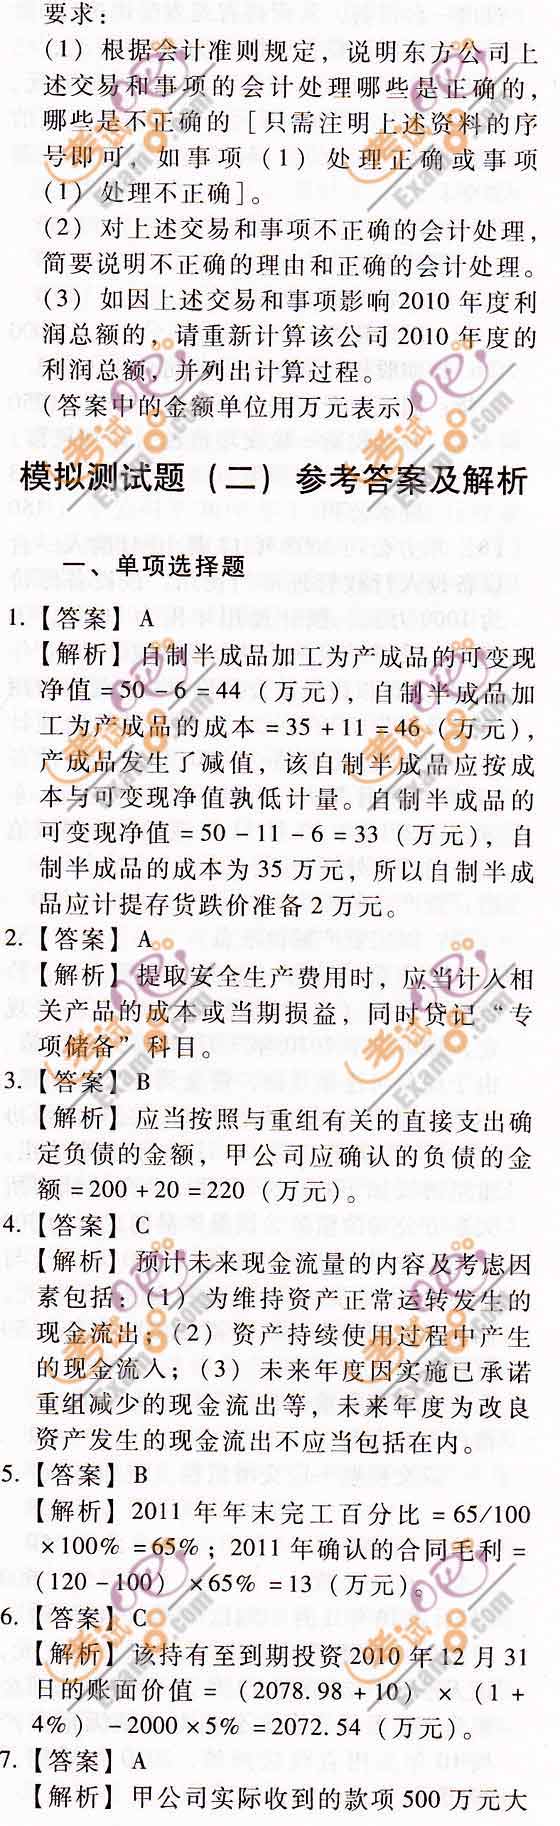 要求：
(1) 根据会计准则规定，说明东方公司上
述交易和事项的会计处理哪些是正确的，
哪些是不正确的［只需注明上述资料的序
号即可，如事项（1）处理正确或事项
(1) 处理不正确］。
(2) 对上述交易和事项不正确的会计处理，
简要说明不正确的理由和正确的会计处理。
(3) 如因上述交易和事项影响 2010 年度利
润总额的，请重新计算该公司 2010 年度的
利润总额，并列出计算过程。
(答案中的金额单位用万元表示)
模拟测试题（二）参考答案及解析
一、单项选择题
1.【答案】A
【解析】自制半成品加工为产成品的可变现
净值＝50－6＝44（万元），自制半成品加
工为产成品的成本＝35＋11＝46（万元），
产成品发生了减值，该自制半成品应按成
本与可变现净值孰低计量。自制半成品的
可变现净值＝50－11－6＝33（万元），自
制半成品的成本为 35 万元，所以自制半成
品应计提存货跌价准备 2 万元。
2.【答案】A
【解析】提取安全生产费用时，应当计入相
关产品的成本或当期损益，同时贷记“专
项储备”科目。
3.【答案】B
【解析】应当按照与重组有关的直接支出确
定负债的金额，甲公司应确认的负债的金
额＝200＋20＝220（万元）。
4.【答案】C
【解析】预计未来现金流量的内容及考虑因
素包括：（1）为维持资产正常运转发生的
现金流出；（2）资产持续使用过程中产生
的现金流入；（3）未来年度因实施已承诺
重组减少的现金流出等，未来年度为改良
资产发生的现金流出不应当包括在内。
5.【答案】B
【解析】2011 年年末完工百分比＝65/100
×100%＝65%；2011 年确认的合同毛利＝
(120－100）×65%＝13（万元）。
6.【答案】C
【解析】该持有至到期投资 2010 年 12 月 31
日的账面价值＝（2078.98＋10）×（1＋
4%）－2000×5%＝2072.54（万元）。
7.【答案】A
【解析】甲公司实际收到的款项 500 万元大